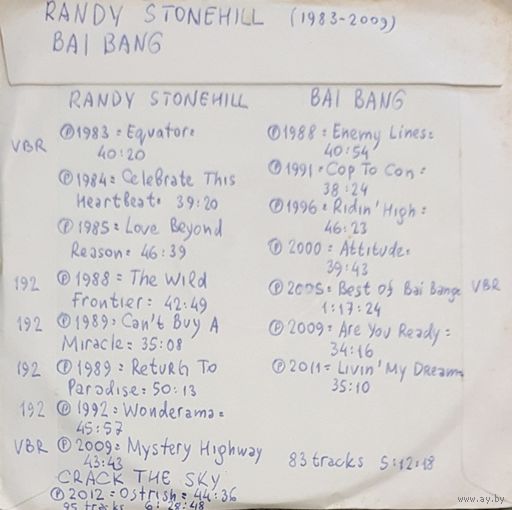 RANDY STONEHILL (1983-2009)
BAI BANG
RANDY STONEHILL
VBR ℗1983=Equator=
40:20
℗1984=Celebrate This
Heartbeat= 39:20
℗1985=Love Beyond
Reason= 46:39
192 ℗1988=The Wild
Frontier= 42:49
192 ℗1989=Can't Buy A
Miracle=35:08
192 ℗1989=Return To
Paradise=50:13
192 ℗1992=Wonderama=
45:57
VBR ℗2009=Mystery Highway
43:43
CRACK THE SKY
℗2012=Ostrish=44:36
95 tracks 6:28:48
BAI BANG
℗1988=Enemy Lines=
40:54
℗1991=Cop To Con=
38:24
℗1996=Ridin' High=
46:23
℗2000=Attitude=
39:43
℗2005=Best Of Bai Bang= VBR
1:17:24
℗2009=Are You Ready=
34:16
℗2011=Livin' My Dream=
35:10
83 tracks 5:12:18
www.ay.by